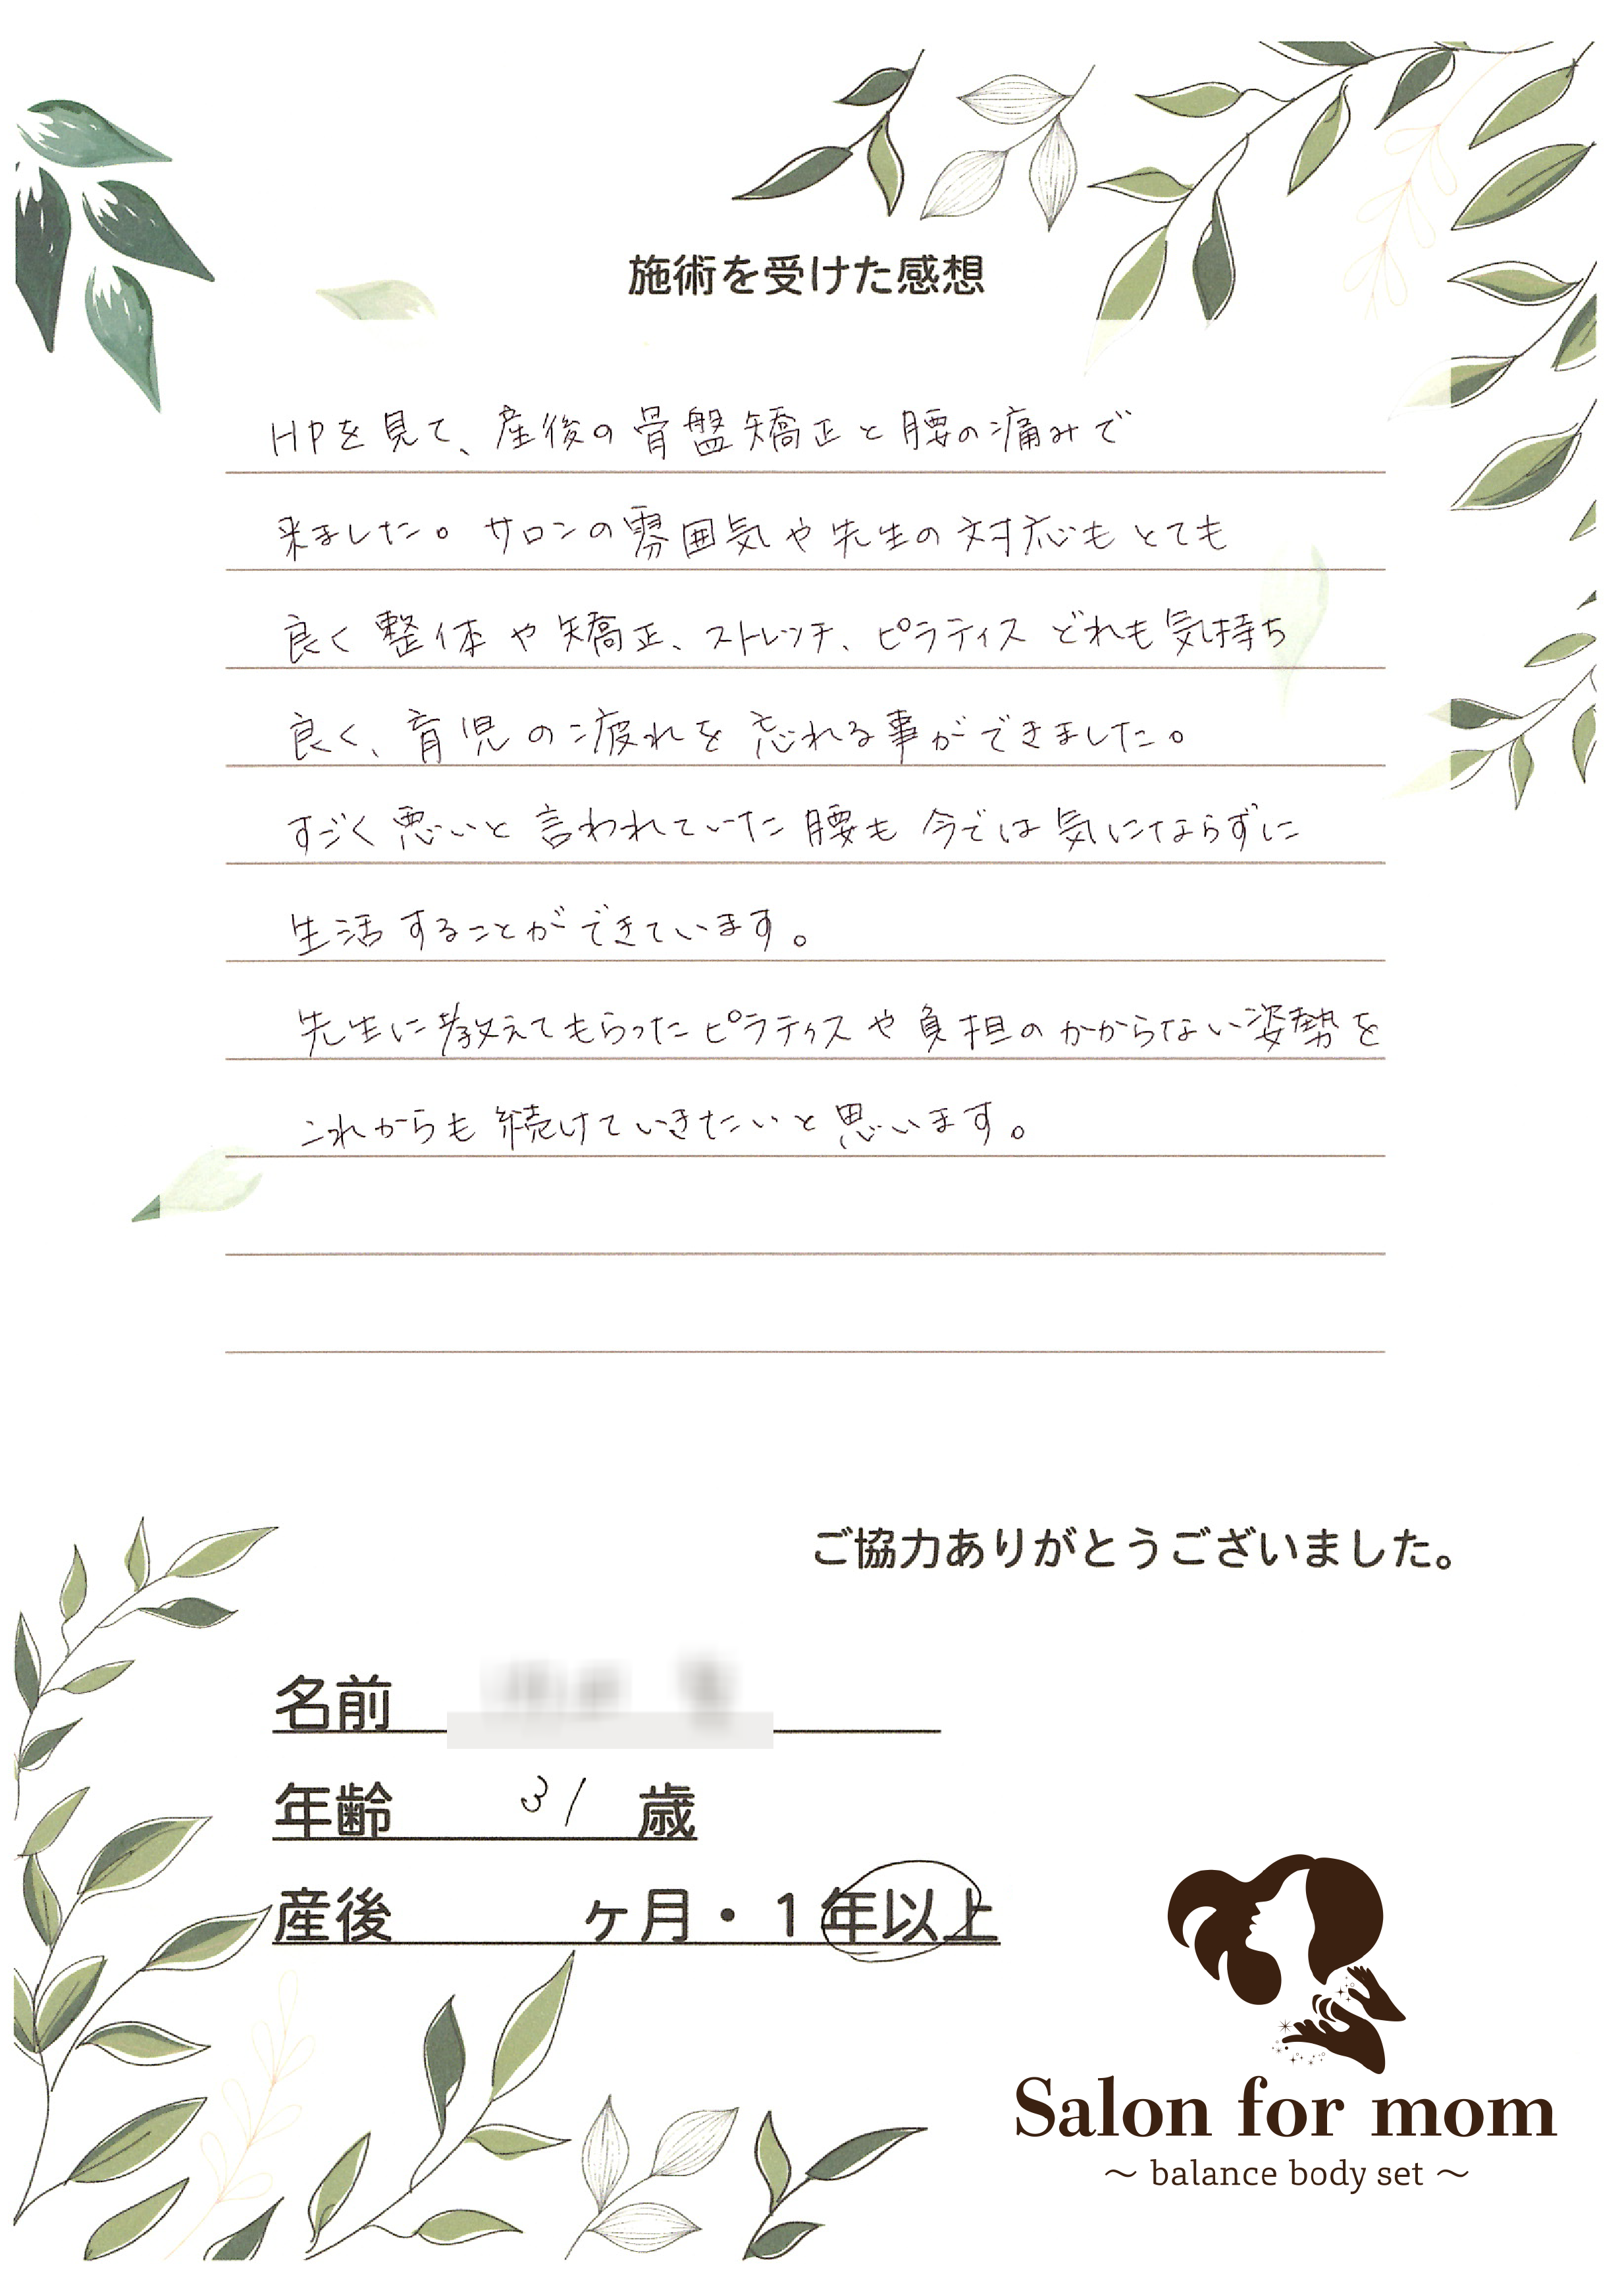 施術を受けた感想
HPを見て、産後の骨盤矯正と腰の痛みで
来ました。サロンの雰囲気や先生の対応もとても
良く整体や矯正、ストレッチ、ピラティスどれも気持ち
良く、育児の疲れを忘れる事ができました。
すごく悪いと言われていた腰も今では気にならずに
生活することができています。
先生に教えてもらったピラティスや負担のかからない姿勢を
これからも続けていきたいと思います。
ご協力ありがとうございました。
名前
年齢 31 歳
産後 ヶ月・1年以上
Salon for mom
～ balance body set ～